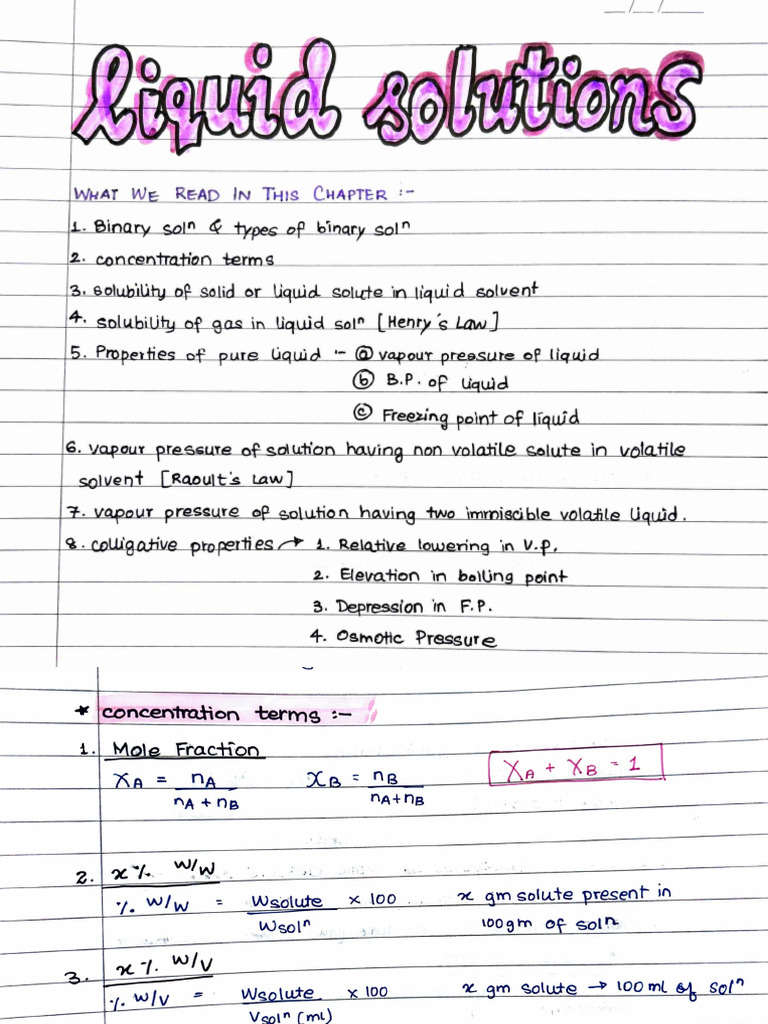 liquid solutions
WHAT WE READ IN THIS CHAPTER :-
1. Binary solⁿ & types of binary solⁿ
2. concentration terms
3. solubility of solid or liquid solute in liquid solvent
4. solubility of gas in liquid solⁿ [Henry's Law]
5. Properties of pure liquid :- ⓐ vapour pressure of liquid
ⓑ B.P. of liquid
ⓒ Freezing point of liquid
6. vapour pressure of solution having non volatile solute in volatile
solvent [Raoult's Law]
7. vapour pressure of solution having two immiscible volatile liquid.
8. colligative properties → 1. Relative lowering in V.P.
2. Elevation in boiling point
3. Depression in F.P.
4. Osmotic Pressure
* concentration terms :-
1. Mole Fraction
X_A = n_A / (n_A + n_B) X_B = n_B / (n_A + n_B) X_A + X_B = 1
2. x % w/w
% w/w = Wsolute / Wsolⁿ × 100 x gm solute present in
100gm of solⁿ
3. x % w/v
% w/v = Wsolute / Vsolⁿ (ml) × 100 x gm solute → 100 ml of solⁿ